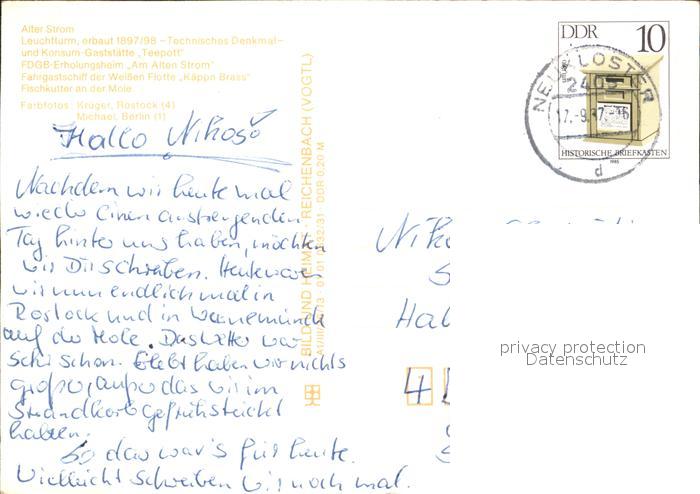 Alter Strom
Leuchtturm, erbaut 1897/98 – Technisches Denkmal –
und Konsum-Gaststätte „Teepott"
FDGB-Erholungsheim „Am Alten Strom"
Fahrgastschiff der Weißen Flotte „Käppn Brass"
Fischkutter an der Mole
Farbfotos: Krüger, Rostock (4)
Michael, Berlin (1)
Hallo Nikošo
Nachdem wir heute mal
wieder einen anstrengenden
Tag hinter uns haben, möchten
wir Dir schreiben. Heute waren
wir nun endlich mal in
Rostock und in Warnemünde
auf der Mole. Das Wetter war
sehr schön. Erlebt haben wir nichts
großes, außer das wir im
Strandkorb gefrühstückt
haben.
So das war's für heute.
Vielleicht schreiben wir noch mal.
BILD UND HEIMAT REICHENBACH (VOGTL)
A1/III/ 01 01 0 32/31 DDR 0,20 M
DDR 10
HISTORISCHE BRIEFKASTEN
1985
NEUKLOSTER
2405
17.-9.87.-16
d
Niko
Hal
4
privacy protection
Datenschutz